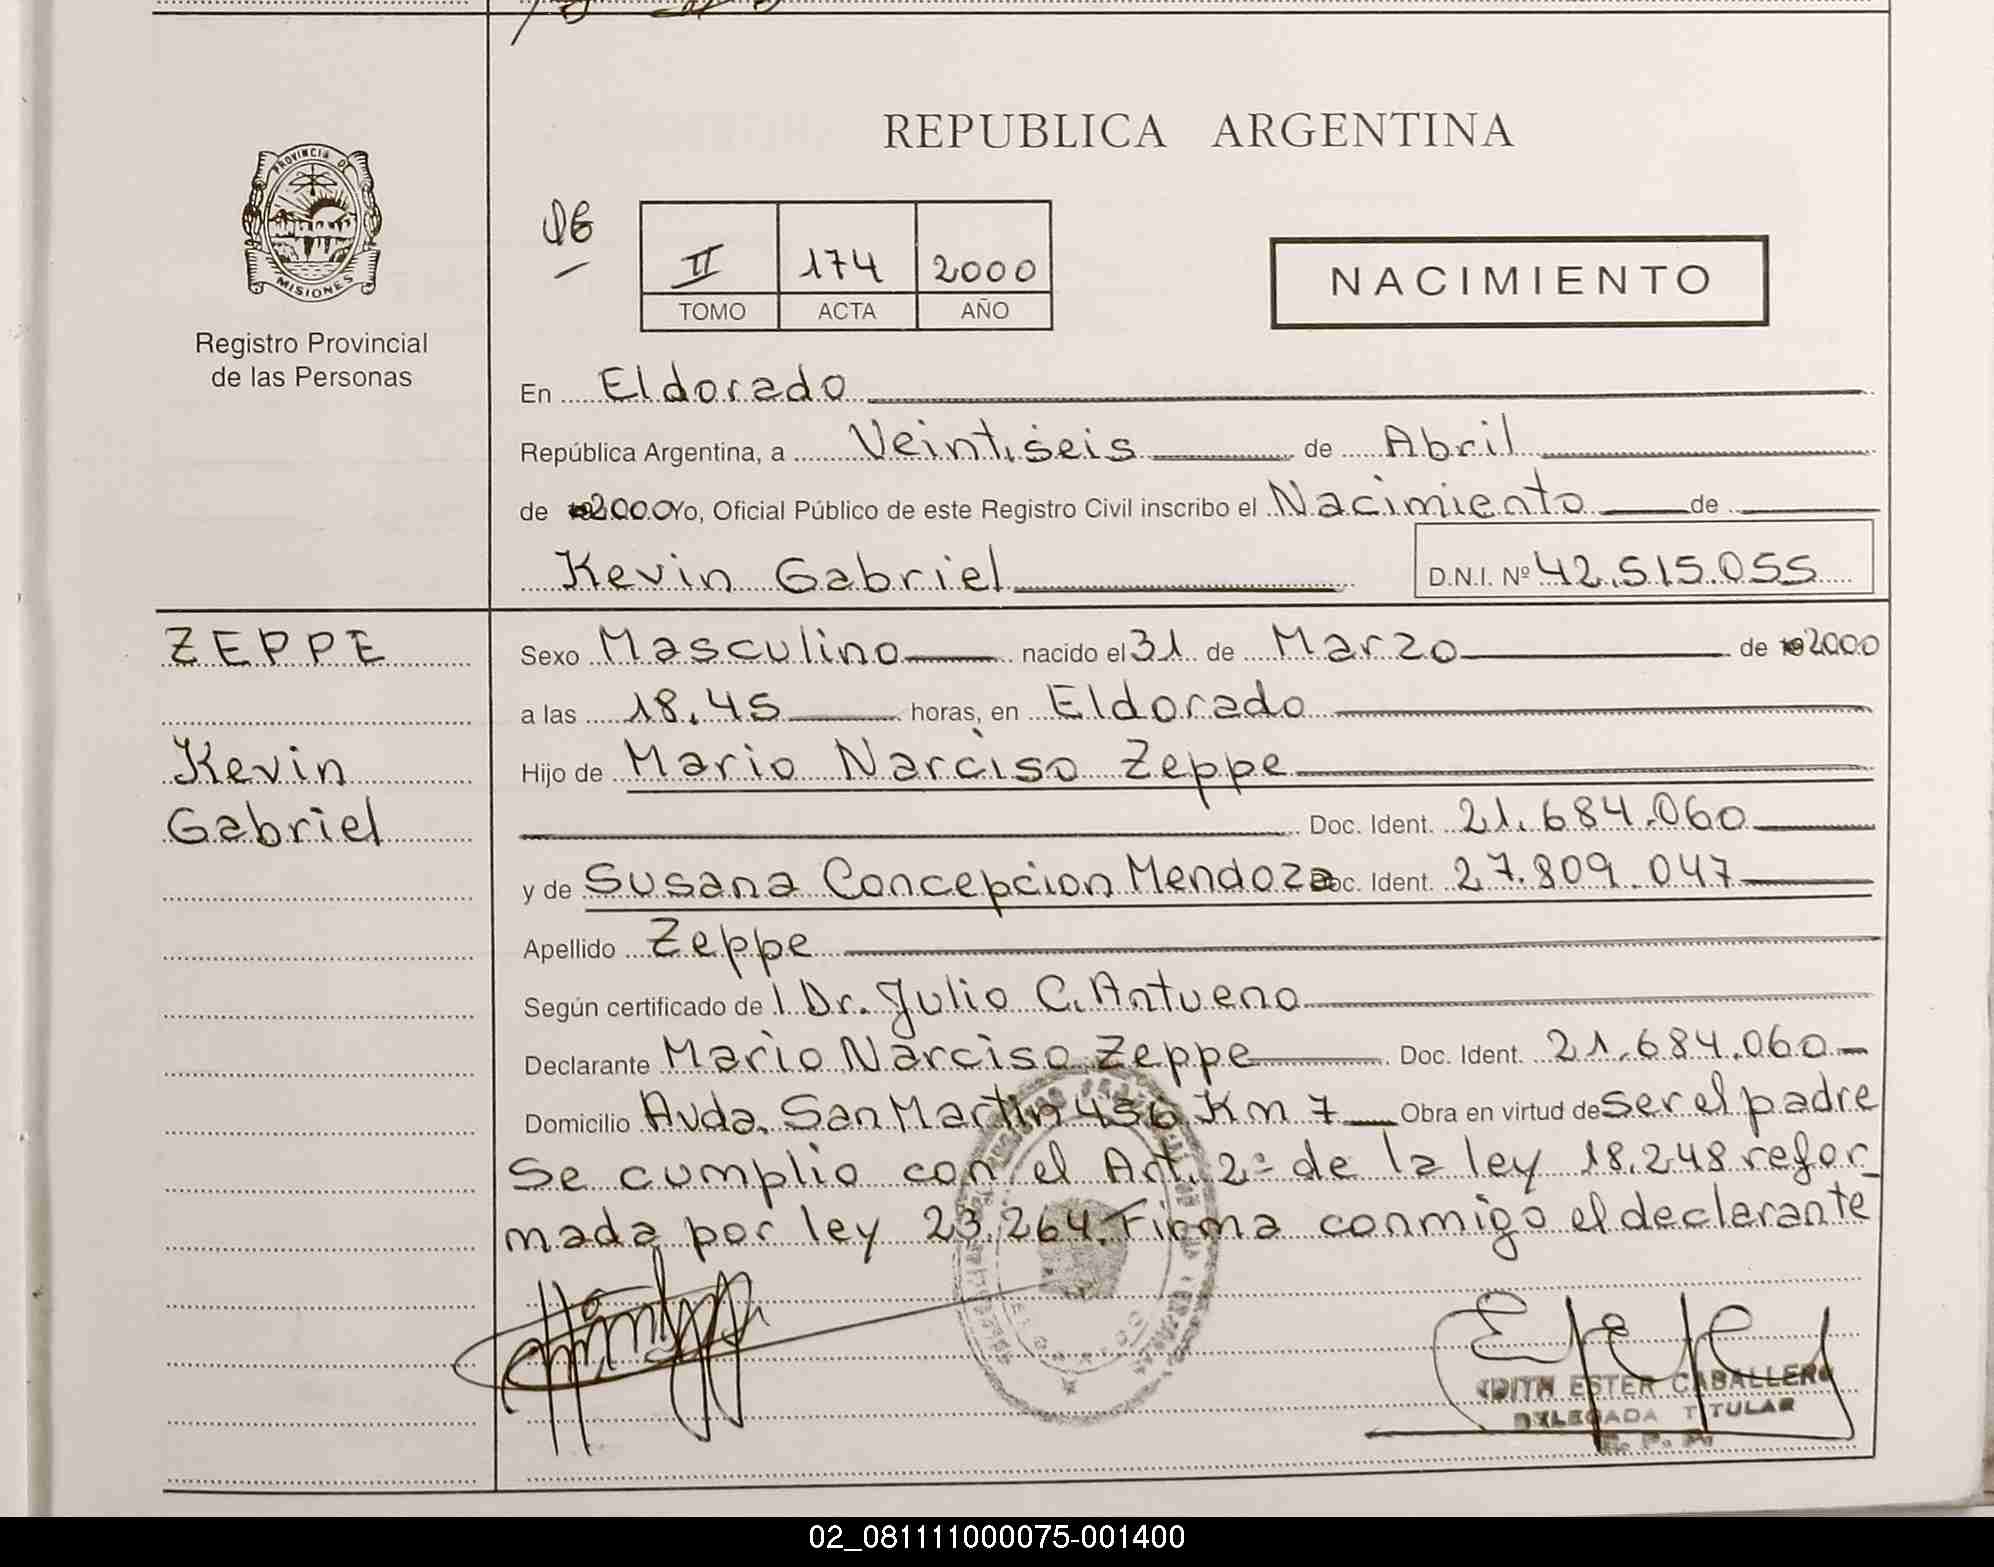 REPUBLICA ARGENTINA
PROVINCIA DE
MISIONES
Registro Provincial
de las Personas
II 174 2000
TOMO ACTA AÑO
NACIMIENTO
En Eldorado
República Argentina, a Veintiseis de Abril
de 2000 Yo, Oficial Público de este Registro Civil inscribo el Nacimiento de
Kevin Gabriel D.N.I. Nº 42.515.055
ZEPPE
Kevin
Gabriel
Sexo Masculino nacido el 31 de Marzo de 2000
a las 18.45 horas, en Eldorado
Hijo de Mario Narciso Zeppe
Doc. Ident. 21.684.060
y de Susana Concepcion Mendoza Doc. Ident. 27.809.047
Apellido Zeppe
Según certificado de l Dr. Julio C. Antueno
Declarante Mario Narciso Zeppe Doc. Ident. 21.684.060
Domicilio Avda. San Martin 456 Km 7 Obra en virtud de ser el padre
Se cumplio con el Art. 2º de la ley 18.248 refor_
mada por ley 23.264. Firma conmigo el declarante
EDITH ESTER CABALLERO
DELEGADA TITULAR
R. P. P.
02_081111000075-001400